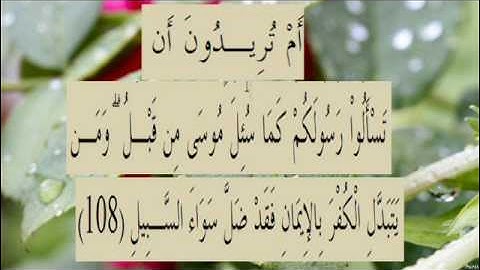 أَمْ تُرِيـــدُونَ أَن
تَسْأَلُواْ رَسُولَكُمْ كَمَا سُئِلَ مُوسَى مِن قَبْـلُ ۗ وَمَـن
يَتَبَدَّلِ الْكُفْرَ بِالإِيمَانِ فَقَدْ ضَلَّ سَوَاءَ السَّـبِيلِ (108)